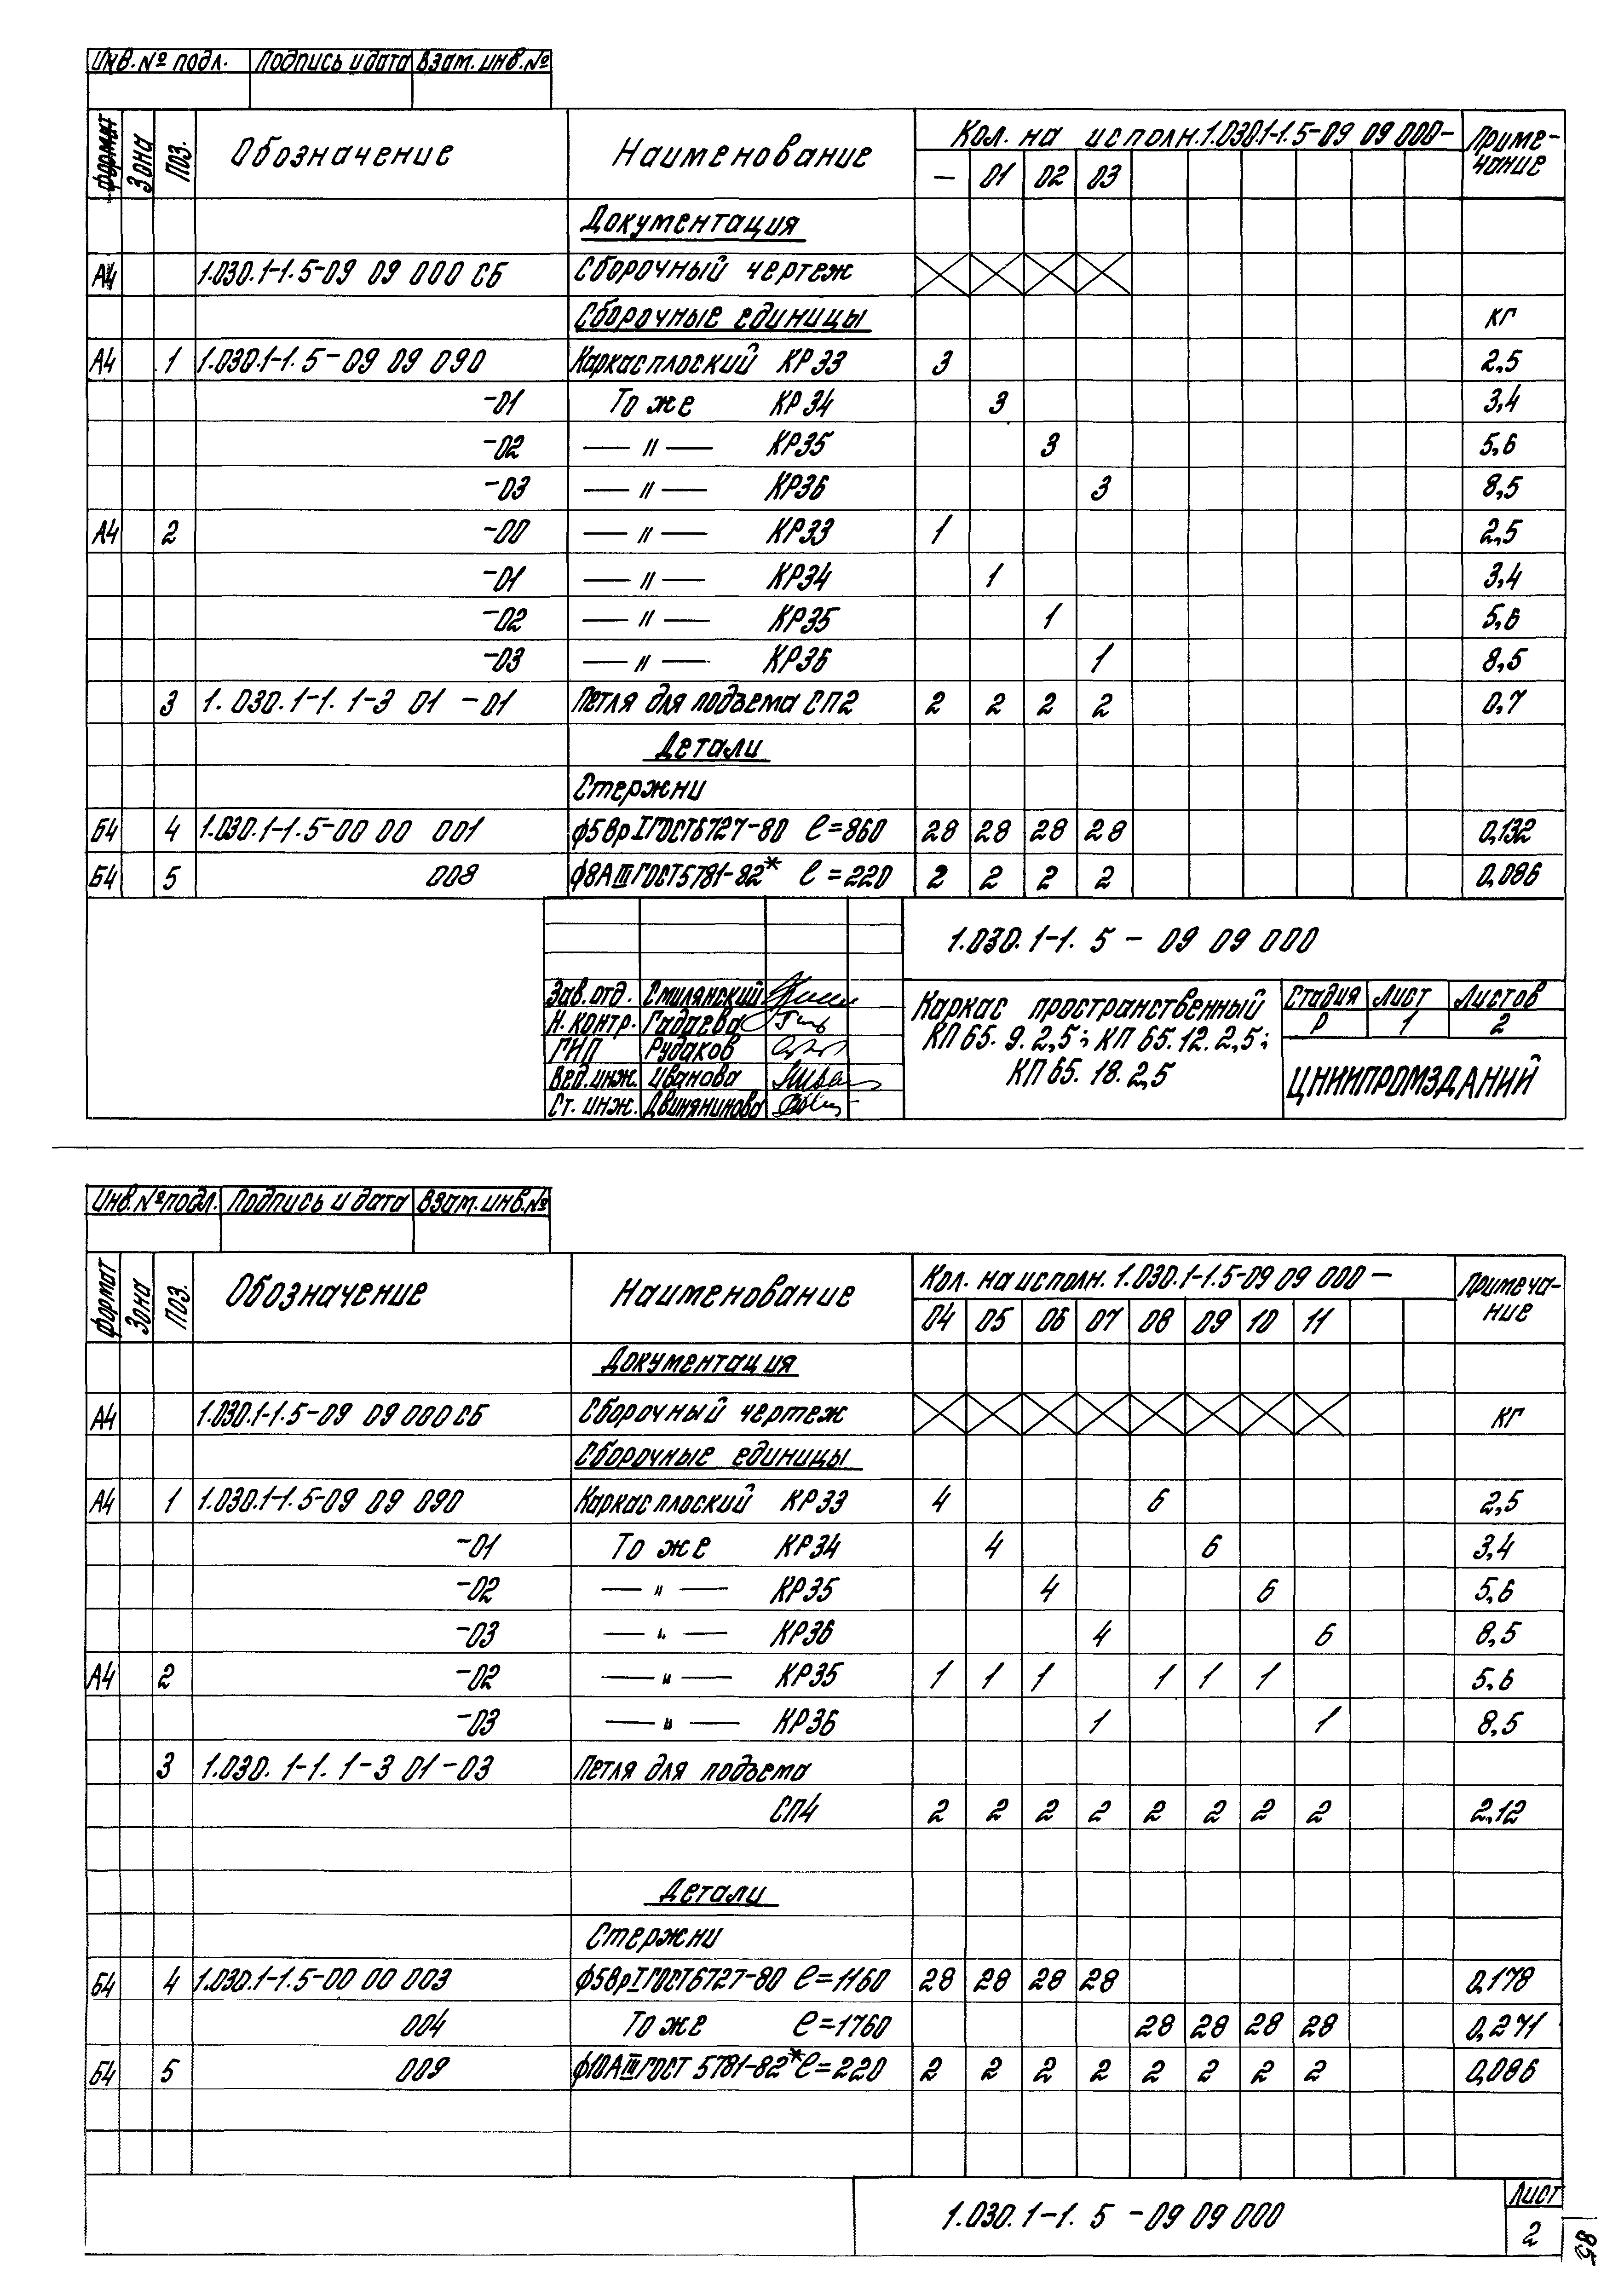 Инв.№ подл. Подпись и дата Взам. инв.№
Формат Зона Поз. Обозначение Наименование Кол. на исполн.1.030.1-1.5-09 09 000- Приме-
чание
— 01 02 03
Документация
А4 1.030.1-1.5-09 09 000 СБ Сборочный чертеж
Сборочные единицы кг
А4 1 1.030.1-1.5-09 09 090 Каркас плоский КР33 3 2,5
-01 То же КР34 3 3,4
-02 — " — КР35 3 5,6
-03 — " — КР36 3 8,5
А4 2 -00 — " — КР33 1 2,5
-01 — " — КР34 1 3,4
-02 — " — КР35 1 5,6
-03 — " — КР36 1 8,5
3 1.030.1-1.1-3 01 -01 Петля для подъема СП2 2 2 2 2 0,7
Детали
Стержни
Б4 4 1.030.1-1.5-00 00 001 ф5ВрI ГОСТ6727-80 ℓ=860 28 28 28 28 0,132
Б4 5 008 ф8АIII ГОСТ5781-82* ℓ=220 2 2 2 2 0,086
1.030.1-1.5-09 09 000
Зав. отд. Смилянский
Н. контр. Гадаева
ГИП Рудаков
Вед. инж. Иванова
Ст. инж. Двинянинова
Каркас пространственный
КП 65.9.2,5; КП 65.12.2,5;
КП 65.18.2,5
Стадия Лист Листов
Р 1 2
ЦНИИПРОМЗДАНИЙ
Инв.№ подл. Подпись и дата Взам. инв.№
Формат Зона Поз. Обозначение Наименование Кол. на исполн. 1.030.1-1.5-09 09 000 — Примеча-
ние
04 05 06 07 08 09 10 11
Документация
А4 1.030.1-1.5-09 09 000 СБ Сборочный чертеж кг
Сборочные единицы
А4 1 1.030.1-1.5-09 09 090 Каркас плоский КР33 4 6 2,5
-01 То же КР34 4 6 3,4
-02 — " — КР35 4 6 5,6
-03 — " — КР36 4 6 8,5
А4 2 -02 — " — КР35 1 1 1 1 1 1 5,6
-03 — " — КР36 1 1 8,5
3 1.030.1-1.1-3 01-03 Петля для подъема
СП4 2 2 2 2 2 2 2 2 2,12
Детали
Стержни
Б4 4 1.030.1-1.5-00 00 003 ф5ВрI ГОСТ6727-80 ℓ=1160 28 28 28 28 0,178
004 То же ℓ=1760 28 28 28 28 0,271
Б4 5 009 ф10АIII ГОСТ 5781-82* ℓ=220 2 2 2 2 2 2 2 2 0,086
1.030.1-1.5-09 09 000
Лист
2
85